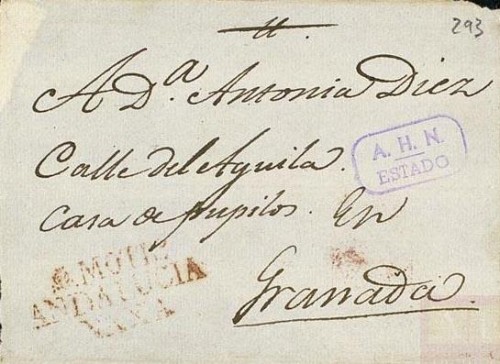 293
A D.ª Antonia Diez
Calle del Aguila.
casa de pupilos. En
Granada.
A. H. N.
ESTADO
MOTRIL
ANDALUCIA
VAXA